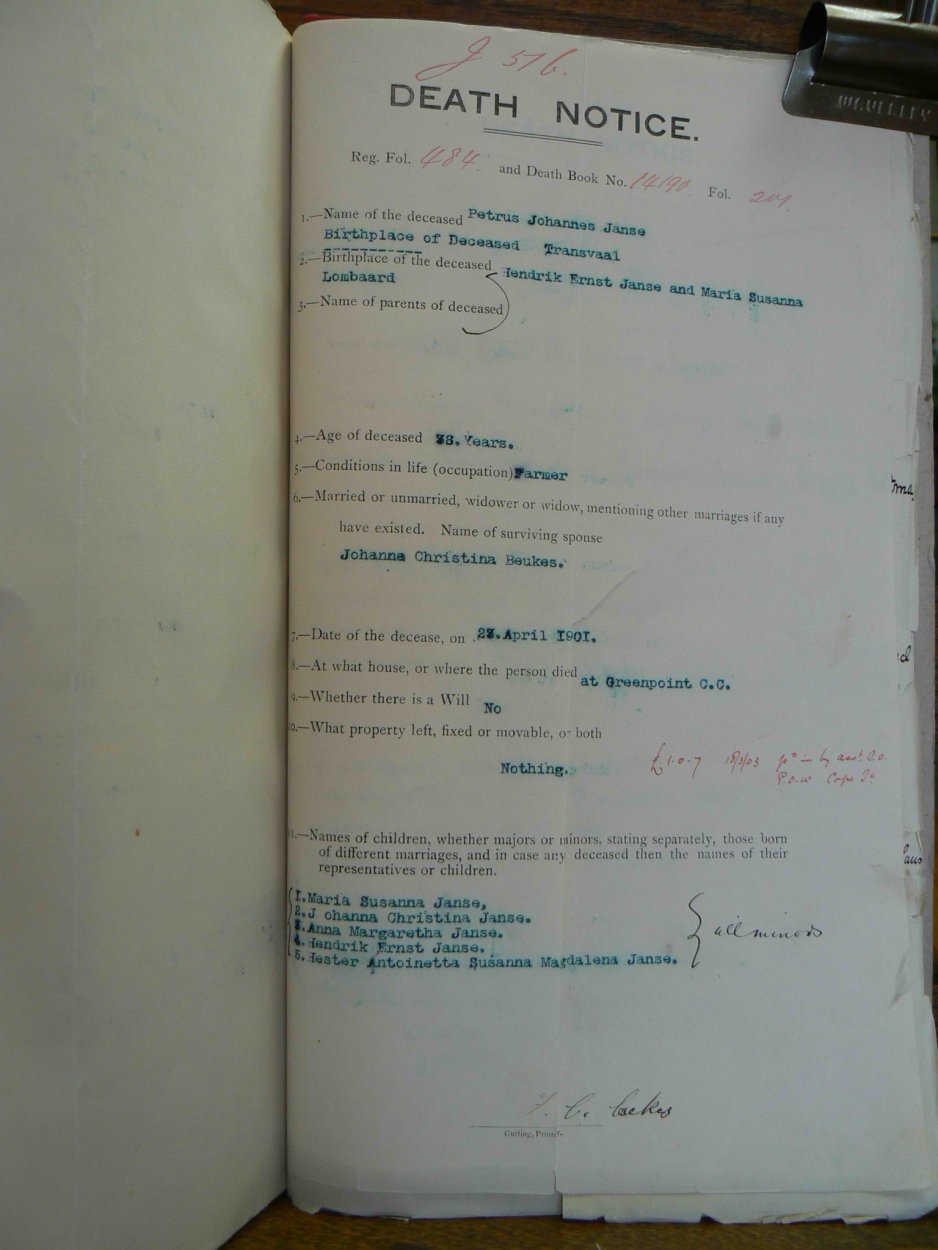 J 516.
DEATH NOTICE.
Reg. Fol. 484 and Death Book No. 14190 Fol. 201
1.—Name of the deceased Petrus Johannes Janse
Birthplace of Deceased Transvaal
2.—Birthplace of the deceased Hendrik Ernst Janse and Maria Susanna
Lombaard
3.—Name of parents of deceased
4.—Age of deceased 38. Years.
5.—Conditions in life (occupation) Farmer
6.—Married or unmarried, widower or widow, mentioning other marriages if any
have existed. Name of surviving spouse
Johanna Christina Beukes.
7.—Date of the decease, on 23. April 1901.
8.—At what house, or where the person died at Greenpoint C.C.
9.—Whether there is a Will No
10.—What property left, fixed or movable, or both
Nothing. £1-0-7 18/3/03 pd in by
P.O.W Cape
11.—Names of children, whether majors or minors, stating separately, those born
of different marriages, and in case any deceased then the names of their
representatives or children.
1.Maria Susanna Janse,
2.J ohanna Christina Janse.
3.Anna Margaretha Janse.
4.Hendrik Ernst Janse. all minors
5.Hester Antoinetta Susanna Magdalena Janse.
Curling, Printer